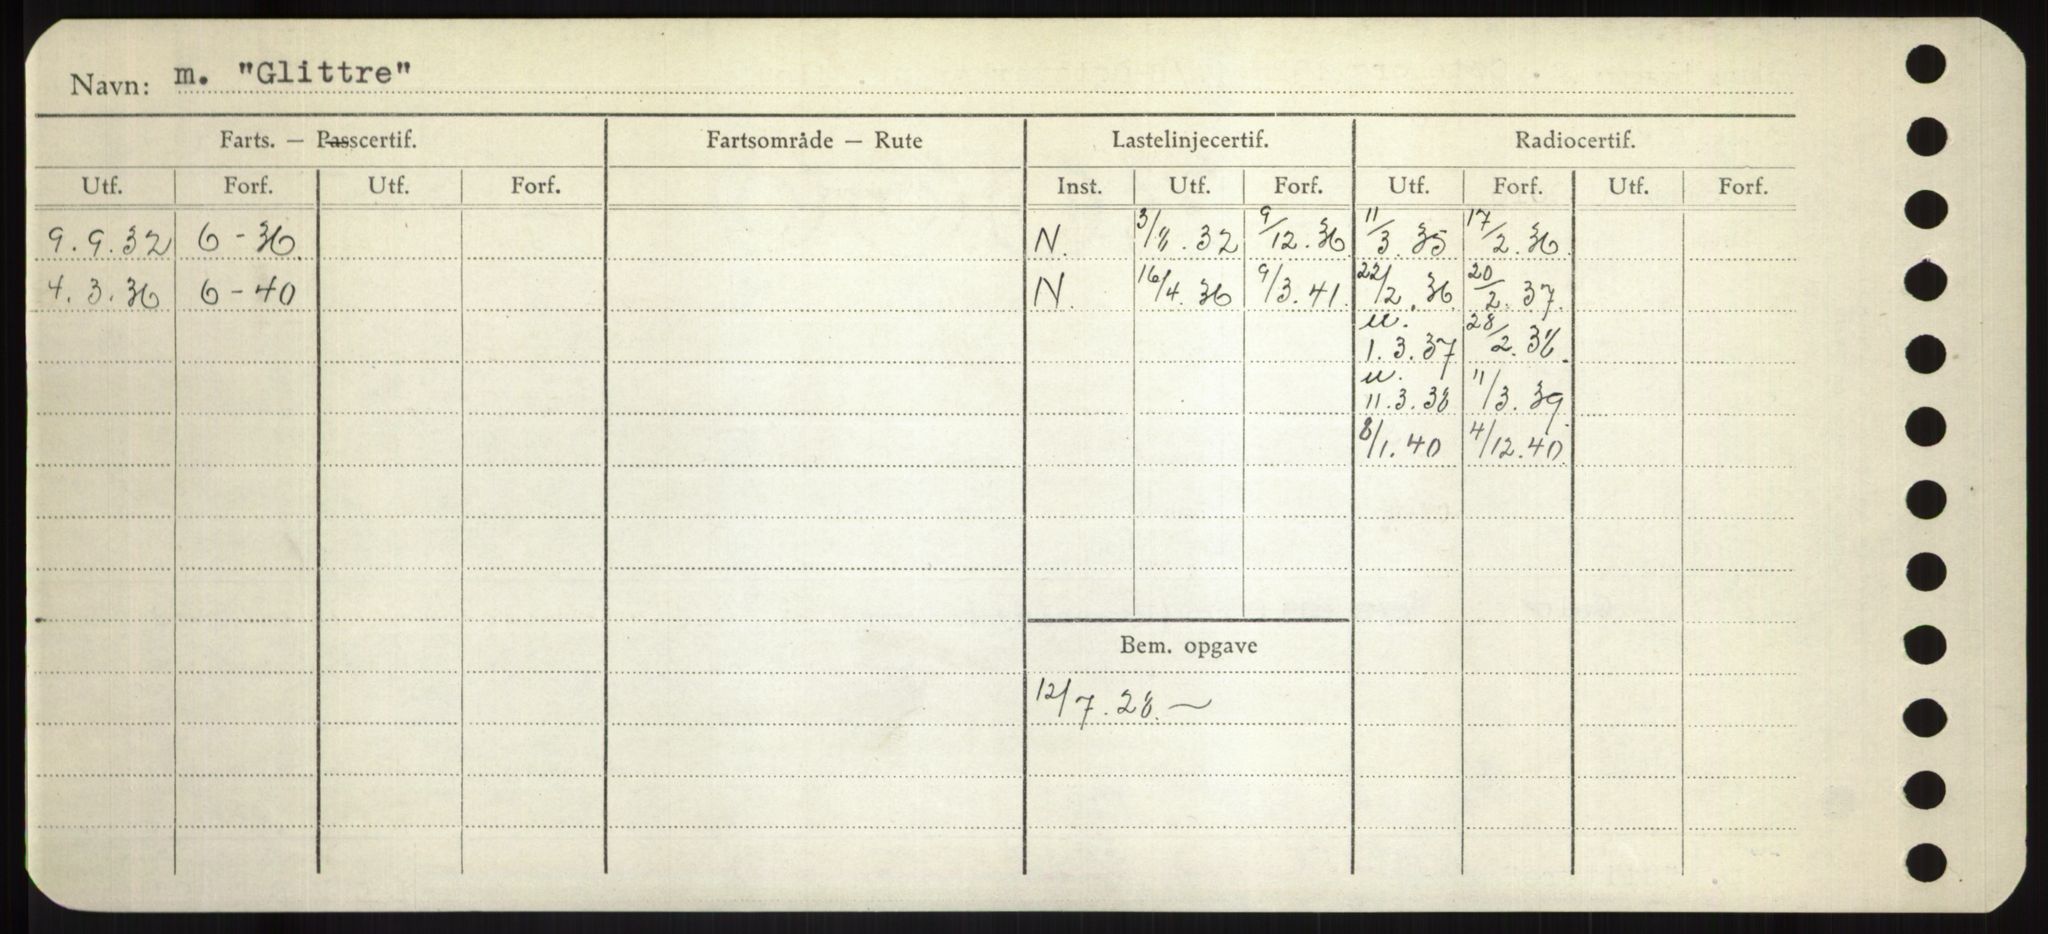 Navn: m. "Glittre"
Farts. — Passcertif. Fartsområde — Rute Lastelinjecertif. Radiocertif.
Utf. Forf. Utf. Forf. Inst. Utf. Forf. Utf. Forf. Utf. Forf.
9.9.32 6-36 N. 3/8.32 9/12.36 11/3.35 17/2.36
4.3.36 6-40 N. 16/4.36 9/3.41 22/2.36 20/2.37
u. 1.3.37 28/2.38
u. 11.3.38 11/3.39
8/1.40 4/12.40
Bem. opgave
12/7.28.—